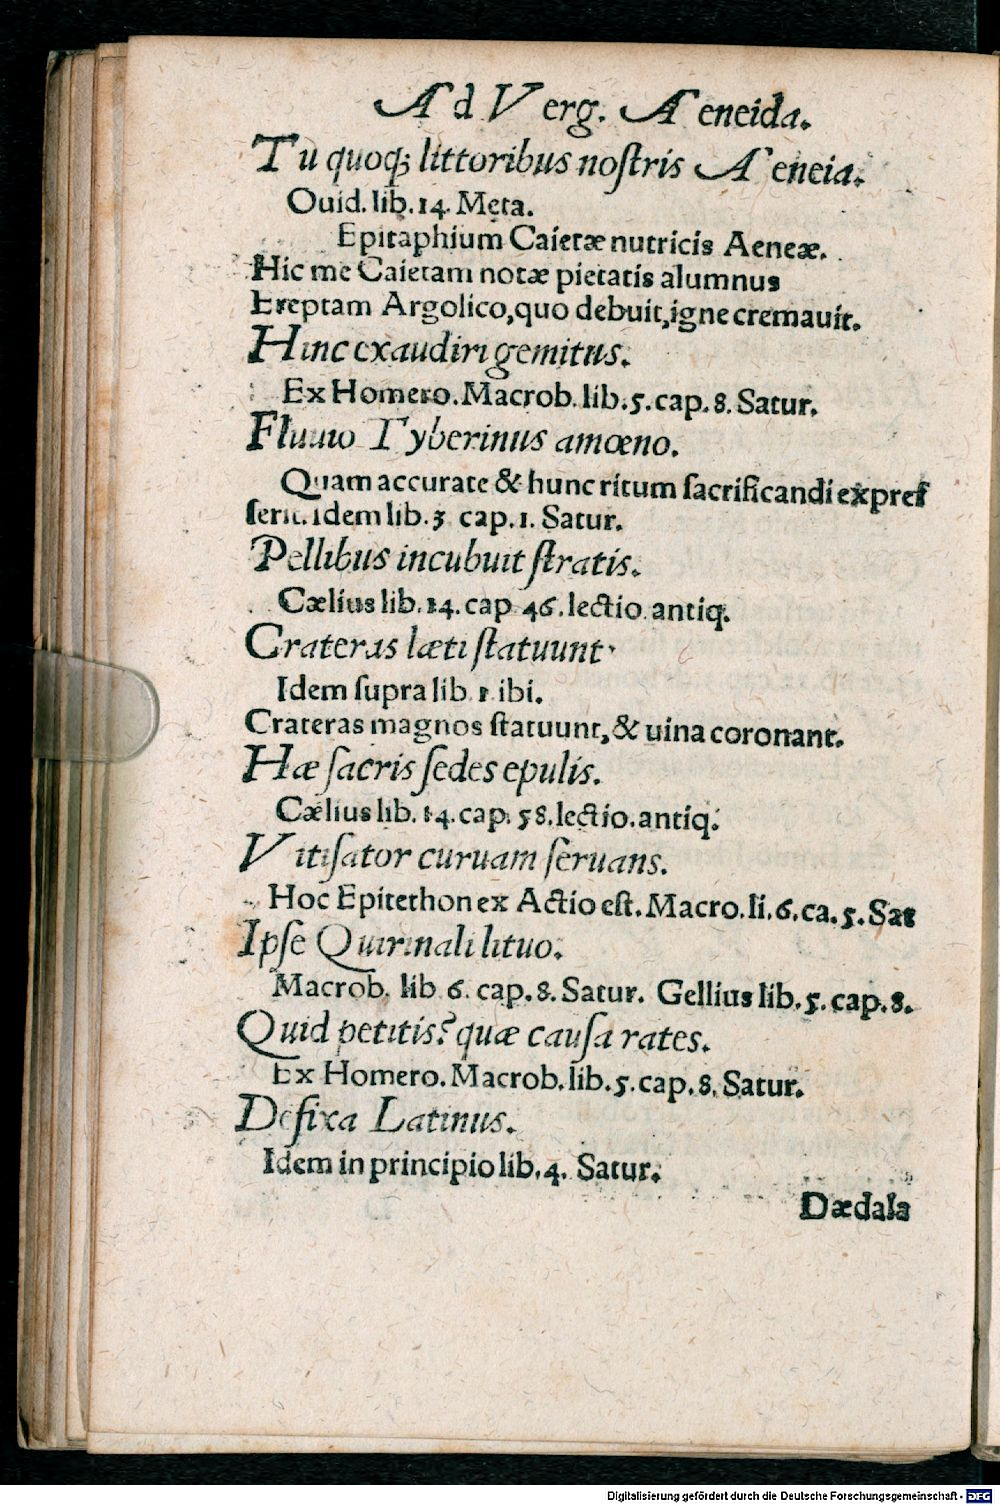 Ad Verg. Aeneida.
Tu quoq; littoribus noſtris Aeneia.
Ouid. lib. 14. Meta.
Epitaphium Caietæ nutricis Aeneæ.
Hic me Caietam notæ pietatis alumnus
Ereptam Argolico, quo debuit, igne cremauit.
Hinc exaudiri gemitus.
Ex Homero. Macrob. lib. 5. cap. 8. Satur.
Fluuio Tyberinus amœno.
Quam accurate & hunc ritum ſacrificandi expreſ
ſerit. idem lib. 3 cap. 1. Satur.
Pellibus incubuit ſtratis.
Cælius lib. 14. cap 46. lectio. antiq.
Crateras læti ſtatuunt.
Idem ſupra lib. 1. ibi.
Crateras magnos ſtatuunt, & uina coronant.
Hæ ſacris ſedes epulis.
Cælius lib. 14. cap. 58. lectio. antiq.
Vitiſator curuam ſeruans.
Hoc Epitethon ex Actio eſt. Macro. li. 6. ca. 5. Sat
Ipſe Quirinali lituo.
Macrob. lib 6. cap. 8. Satur. Gellius lib. 5. cap. 8.
Quid petitis? quæ cauſa rates.
Ex Homero. Macrob. lib. 5. cap. 8. Satur.
Defixa Latinus.
Idem in principio lib. 4. Satur.
Dædala
Digitalisierung gefördert durch die Deutsche Forschungsgemeinschaft - DFG